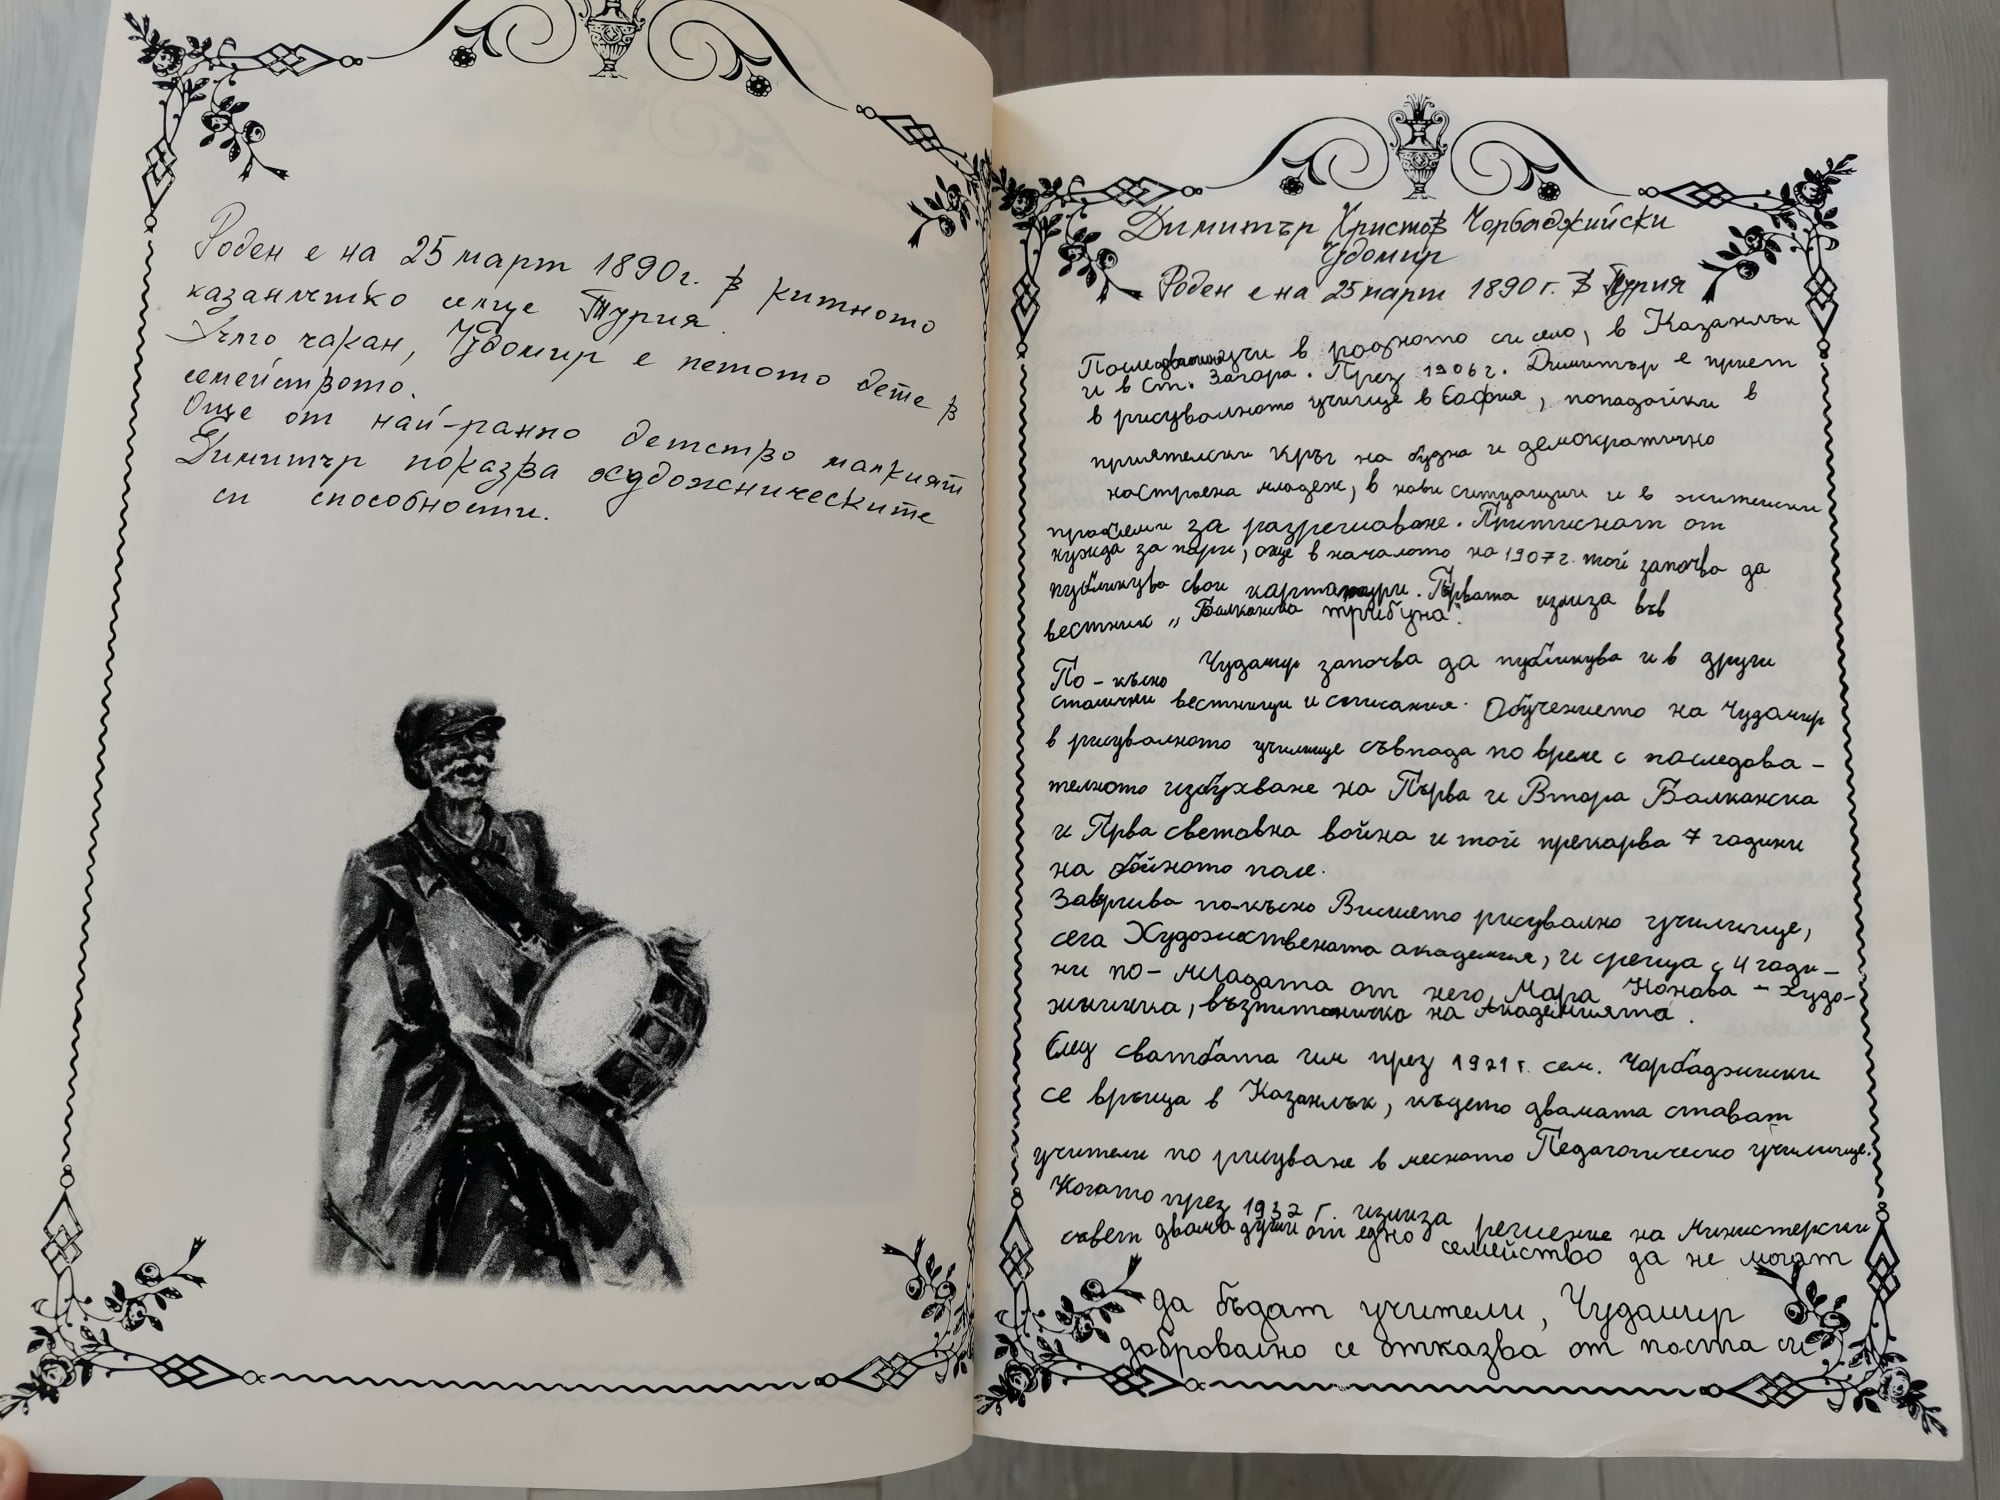 Роден е на 25 март 1890 г. в китното
казанлъшко селце Турия.
Дълго чакан, Чудомир е петото дете в
семейството.
Още от най-ранно детство малкият
Димитър показва художническите
си способности.
Димитър Христов Чорбаджийски
Чудомир
Роден е на 25 март 1890 г. в Турия
в родното си село, в Казанлък
и в Ст. Загора. През 1906 г. Димитър е приет
в рисувалното училище в София, попадайки в
приятелски кръг на будна и демократично
настроена младеж, в нови ситуации и в житейски
проблеми за разрешаване. Притиснат от
нужда за пари, още в началото на 1907 г. той започва да
публикува свои Първата излиза във
вестник „Балканска трибуна".
По-късно Чудомир започва да публикува и в други
столични вестници и списания. Обучението на Чудомир
в рисувалното училище съвпада по време с последова-
телното избухване на Първа и Втора Балканска
и Прва световна война и той прекарва 7 години
на бойното поле.
Завършва по-късно Висшето рисувално училище,
сега Художествената академия, и среща с 4 годи-
ни по-младата от него Мара Йонова - худо-
жничка, възпитаничка на Академията.
След сватбата им през 1921 г. сем. Чорбаджийски
се връща в Казанлък, където двамата стават
учители по рисуване в местното Педагогическо училище.
Когато през 1932 г. излиза решение на Министерски
съвет двама души от едно семейство да не могат
да бъдат учители, Чудомир
доброволно се отказва от поста си